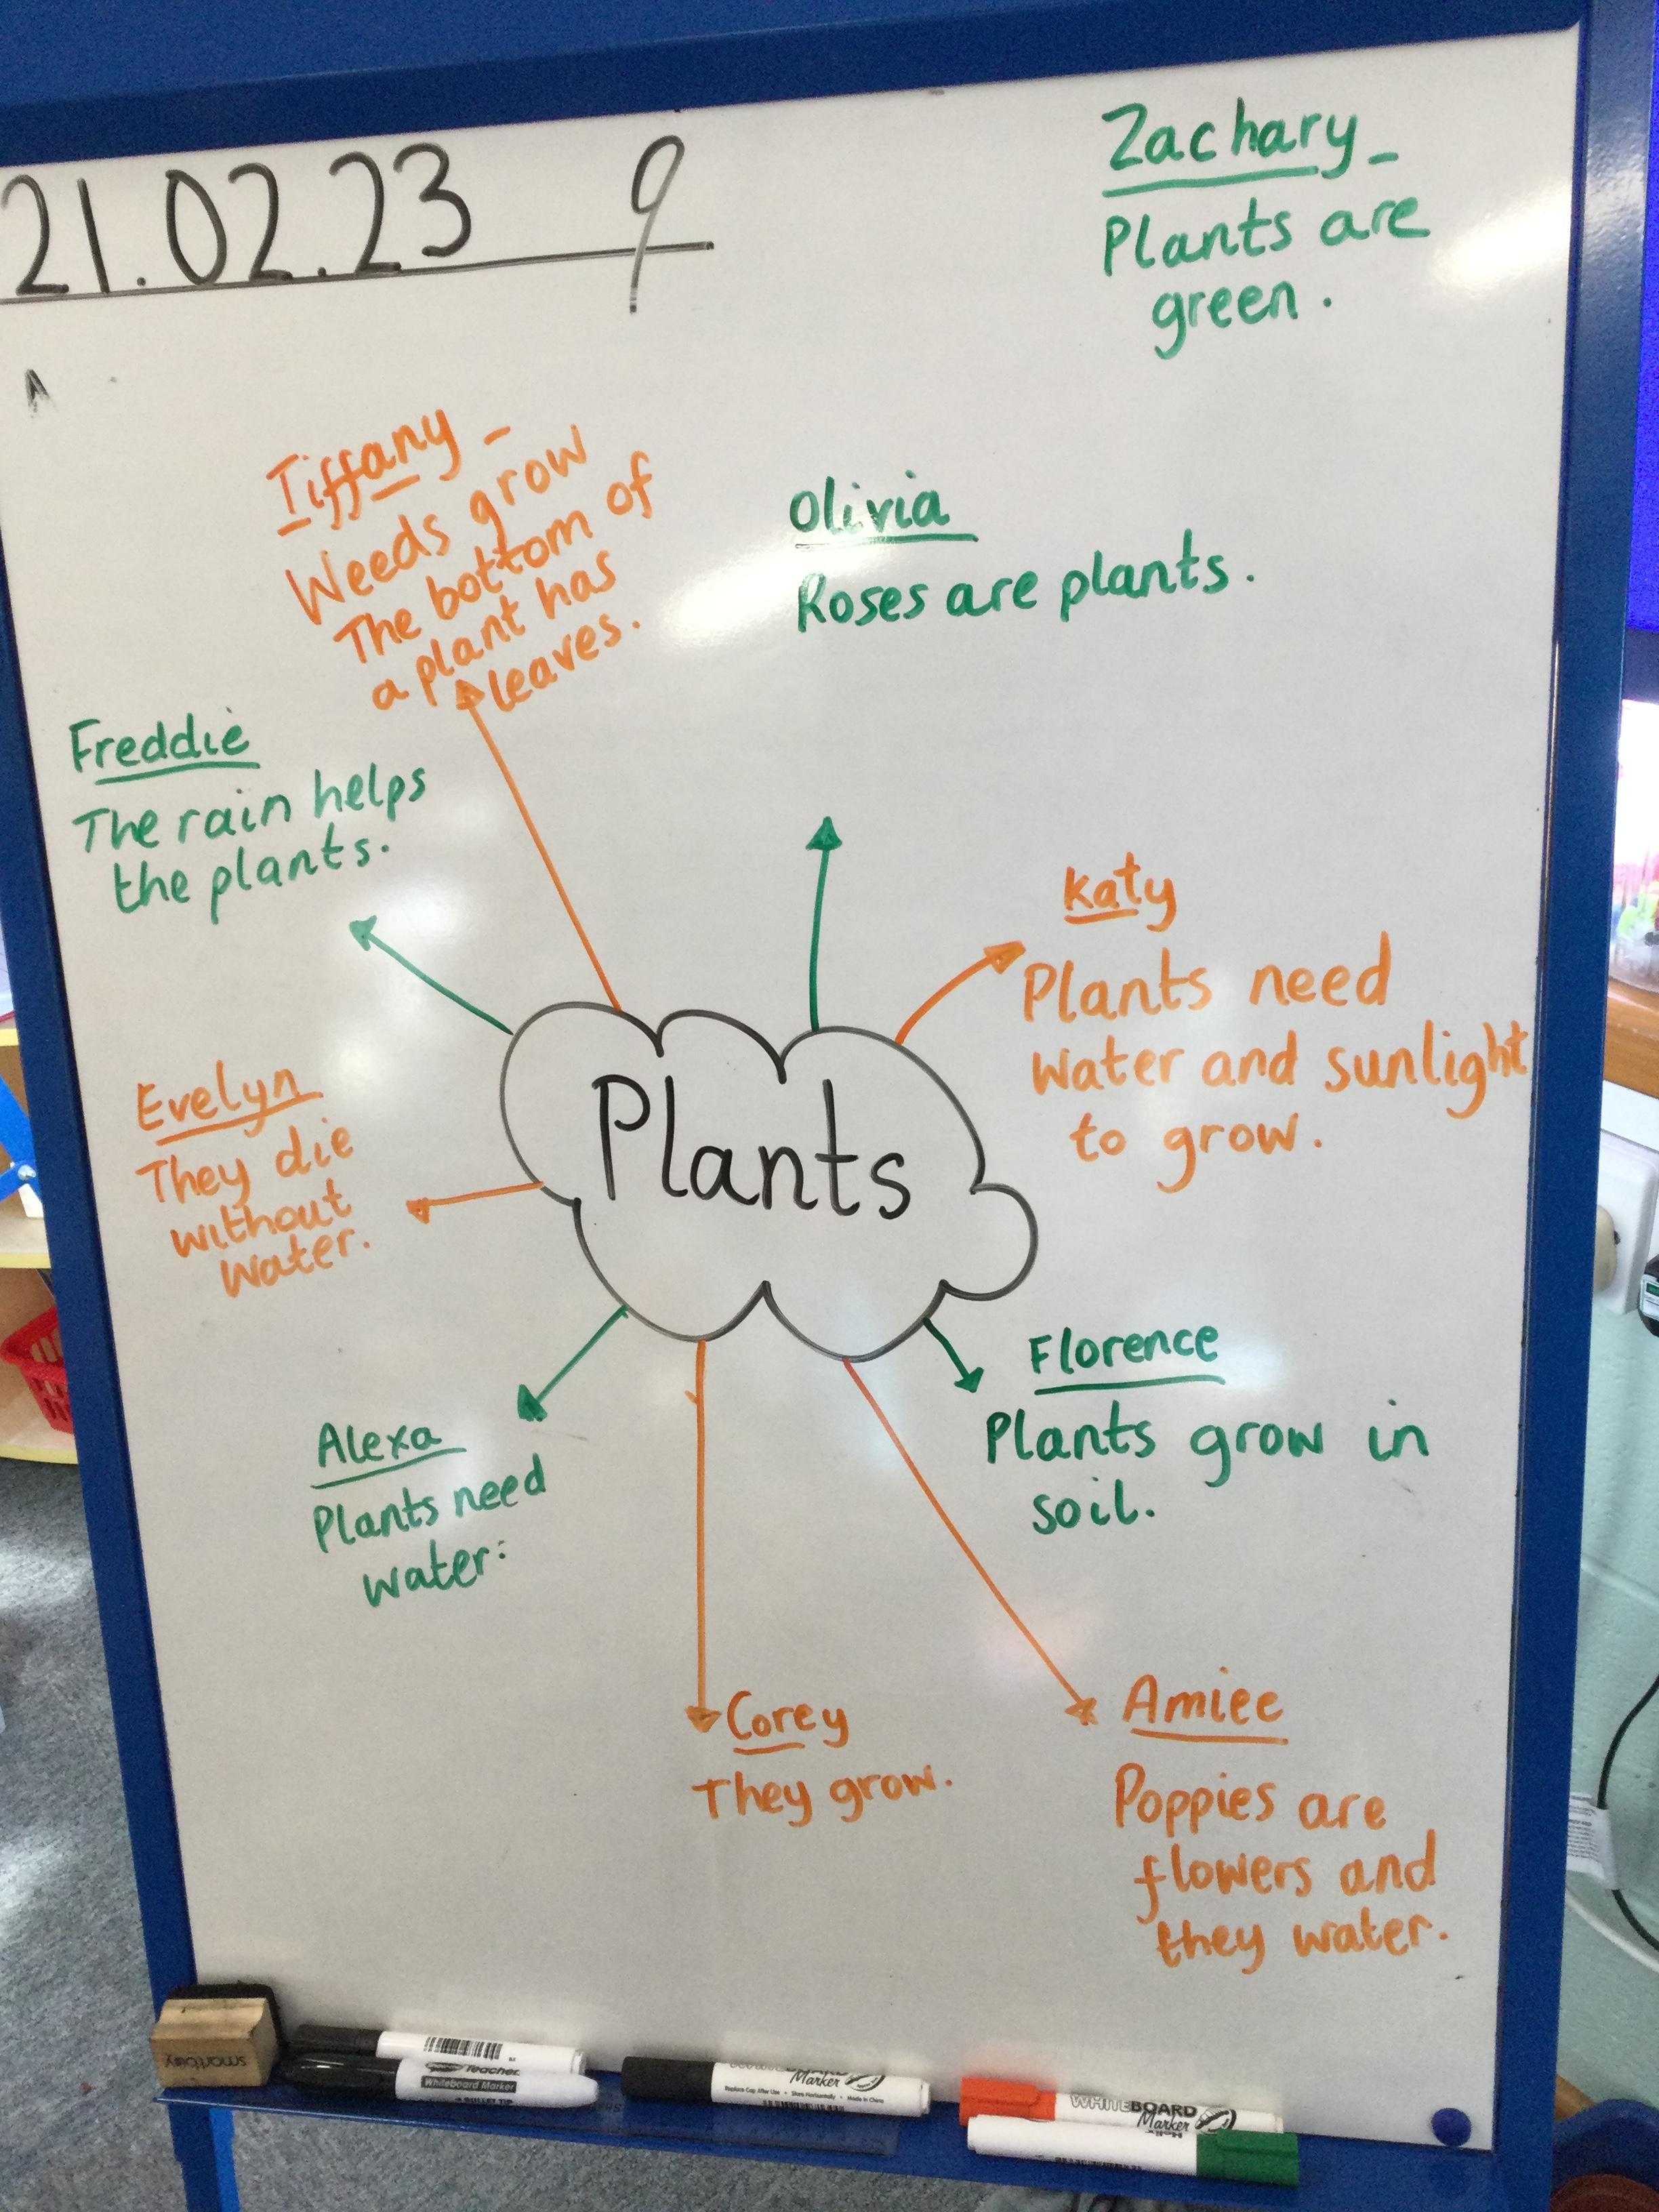 21.02.23 9
Zachary -
Plants are
green.
Tiffany -
Weeds grow
The bottom of
a plant has
leaves.
Olivia
Roses are plants.
Freddie
The rain helps
the plants.
Katy
Plants need
water and sunlight
to grow.
Plants
Evelyn
They die
without
water.
Florence
Plants grow in
soil.
Alexa
Plants need
water:
Corey
They grow.
Amiee
Poppies are
flowers and
they water.
smartbuy
Teacher
Whiteboard Marker
BULLET TIP
Marker
Replace Cap After Use • Store Horizontally • Made in China
WHITEBOARD
Marker